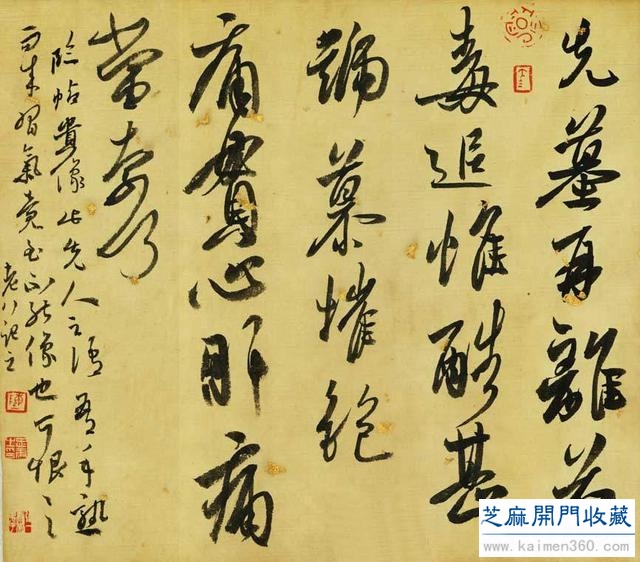 先墓再離荼
毒追惟酷甚
號慕摧絕
痛貫心肝痛
當奈何
臨帖貴像此先人之語吾手熟
而習氣竟至不能像也可恨
老八記之
芝麻開門收藏
www.kaimen360.com